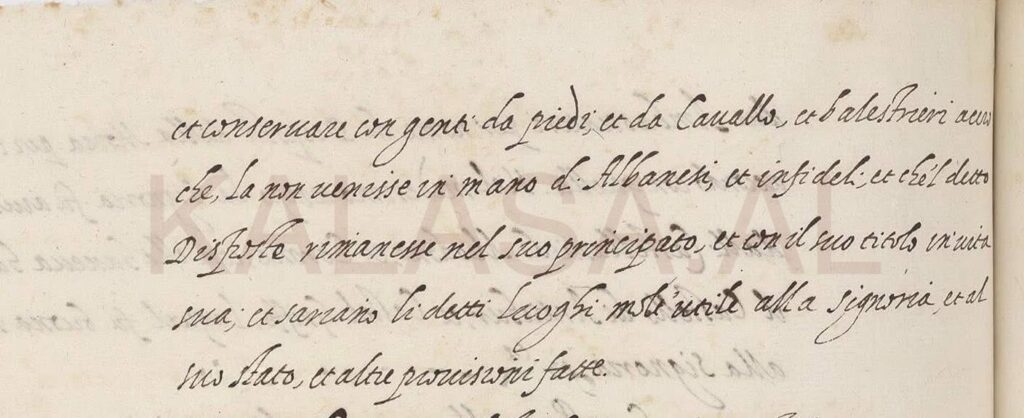 et conservare con genti da piedi, et da Cavallo, et balestrieri accio
che, la non venisse in mano di Albanesi, et infideli, et che'l detto
Dispoto rimanesse nel suo principato, et con il suo titolo in vita
sua; et sariano li detti luoghi molt'utile alla signoria, et al
suo stato, et altre provisioni fatte.
KALASA.AL